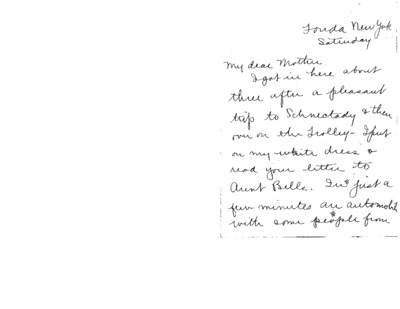 Fonda New York
Saturday
My dear Mother
I got in here about
three after a pleasant
trip to Schnectady & then
over on the Trolley - I put
on my white dress &
read your letter to
Aunt Belle. In just a
few minutes an automobil
with some people from